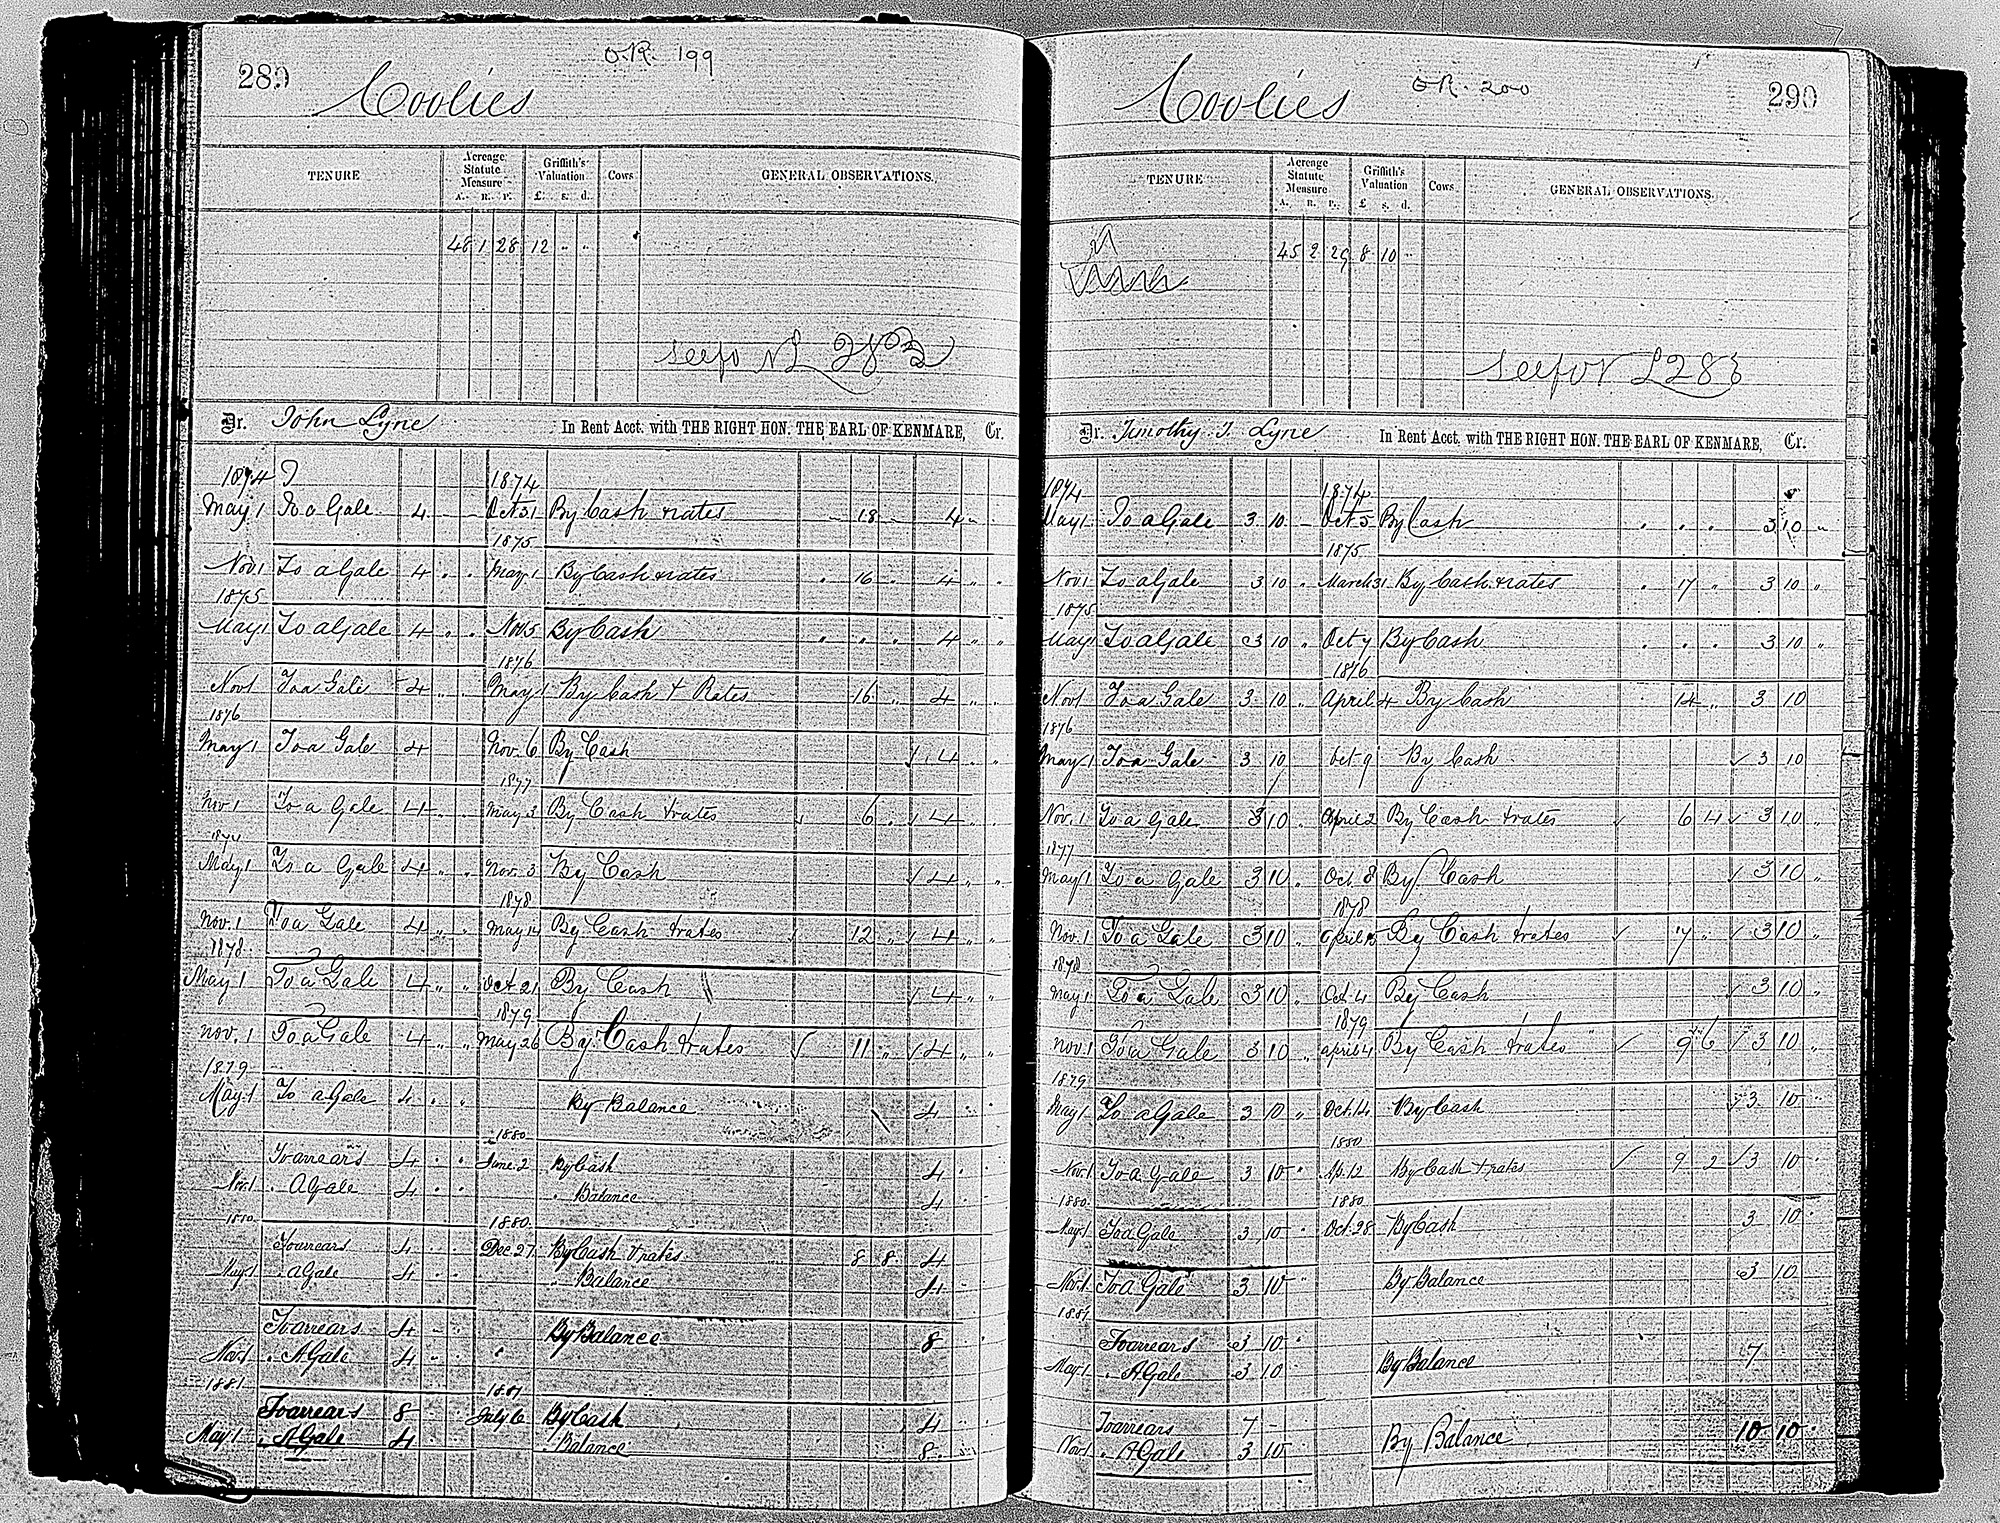 289 Coolies O.R. 199
TENURE Acreage Statute Measure A. R. P. Griffith's Valuation £. s. d. Cows GENERAL OBSERVATIONS.
48 1 28 12 " "
see for
Dr. John Lyne In Rent Acct. with THE RIGHT HON. THE EARL OF KENMARE, Cr.
1874 1874
May 1 To a Gale 4 Oct 31 By Cash & rates 18 4 "
1875
Nov 1 To a Gale 4 " " May 1 By Cash & rates " 16 " 4 " "
1875
May 1 To a Gale 4 " " Nov 5 By Cash " " " 4 " "
1876
Nov 1 To a Gale 4 " " May 1 By Cash & Rates 16 " 4 " "
1876
May 1 To a Gale 4 Nov. 6 By Cash √ 4 " "
1877
Nov 1 To a Gale 4 " " May 3 By Cash & rates √ 6 " √ 4 " "
1877
May 1 To a Gale 4 " " Nov. 3 By Cash √ 4 " "
1878
Nov. 1 To a Gale 4 " " May 14 By Cash & rates √ 12 " √ 4 " "
1878
May 1 To a Gale 4 " " Oct 21 By Cash √ 4 " "
1879
Nov. 1 To a Gale 4 " " May 26 By Cash & rates √ 11 " √ 4 " "
1879
May 1 To a Gale 4 " " By Balance 4
1880
To arrears 4 " " June 2 By Cash 4 " "
Nov. 1 " A Gale 4 " " " Balance 4
1880 1880
To arrears 4 " " Dec 27 By Cash & rates 8 8 4
May 1 " a Gale 4 " " " Balance 4
To arrears 4 By Balance 8
Nov. 1 " A Gale 4
1881 1881
To arrears 8 July 6 By Cash 4
May 1 " A Gale 4 " Balance 8
Coolies O.R. 200 290
TENURE Acreage Statute Measure A. R. P. Griffith's Valuation £ s. d. Cows GENERAL OBSERVATIONS.
45 2 29 8 10 "
see for
Dr. Timothy J. Lyne In Rent Acct. with THE RIGHT HON. THE EARL OF KENMARE, Cr.
1874 1874
May 1 To a Gale 3 10 Oct 5 By Cash " " " 3 10 "
1875
Nov 1 To a Gale 3 10 " March 31 By Cash & rates " 17 " 3 10 "
1875
May 1 To a Gale 3 10 " Oct 7 By Cash " " " 3 10 "
1876
Nov 1 To a Gale 3 10 " April 4 By Cash 14 " 3 10
1876
May 1 To a Gale 3 10 Oct 9 By Cash √ 3 10
Nov. 1 To a Gale 3 10 " April 2 By Cash & rates √ 6 4 √ 3 10 "
1877
May 1 To a Gale 3 10 " Oct. 8 By Cash √ 3 10 "
1878
Nov. 1 To a Gale 3 10 " April By Cash & rates √ 7 " √ 3 10 "
1878
May 1 To a Gale 3 10 " Oct 4 By Cash √ 3 10 "
1879
Nov. 1 To a Gale 3 10 " April 4 By Cash & rates √ 9 6 √ 3 10 "
1879
May 1 To a Gale 3 10 " Oct. 14 By Cash √ 3 10 "
1880
Nov. 1 To a Gale 3 10 " Ap. 12 By Cash & rates √ 9 2 √ 3 10 "
1880 1880
May 1 To a Gale 3 10 " Oct. 28 By Cash 3 10 "
Nov. 1 To a Gale 3 10 " By Balance 3 10
1881
To arrears 3 10 "
May 1 " A Gale 3 10 By Balance 7
To arrears 7 -
Nov. 1 " A Gale 3 10 By Balance 10 10